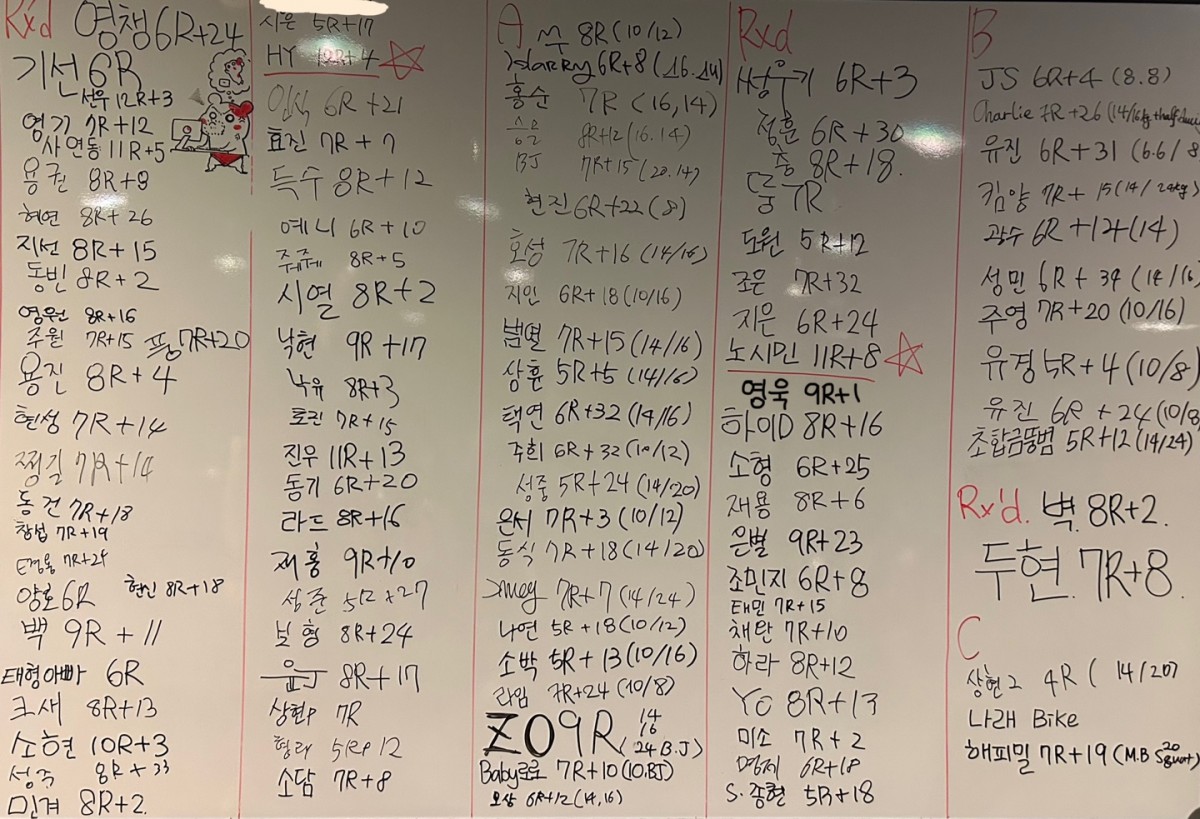 Rx'd 영챙 6R+24
기선 6R
선우 12R+3
영기 7R+12
사연동 11R+5
용권 8R+9
혜연 8R+26
지선 8R+15
동빈 8R+2
영원 8R+16
주원 7R+15
7R+20
용진 8R+4
현성 7R+14
찡길 7R+14
동건 7R+18
창섭 7R+19
7R+25
양호 6R
현신 8R+18
백 9R+11
태형아빠 6R
크새 8R+13
소현 10R+3
성주 8R+23
민겨 8R+2
시은 5R+17
HY 12R+4
인식 6R+21
효진 7R+7
득수 8R+12
예니 6R+10
쥬제 8R+5
시열 8R+2
낙현 9R+17
낙유 8R+3
토진 7R+15
진우 11R+13
동기 6R+20
라드 8R+16
재홍 9R+10
성준 5R+27
보형 8R+24
8R+17
상현P 7R
형래 5R+12
소담 7R+8
A
M 8R (10/12)
starry 6R+8 (16.14)
홍순 7R (16,14)
8R+12 (16.14)
BJ 7R+15 (20.14)
현진 6R+22 (8)
호성 7R+16 (14/16)
지인 6R+18 (10/16)
범열 7R+15 (14/16)
상훈 5R+5 (14/16)
택연 6R+32 (14/16)
주희 6R+32 (10/12)
성중 5R+24 (14/20)
은서 7R+3 (10/12)
동식 7R+18 (14/20)
7R+7 (14/24)
나연 5R+18 (10/12)
소박 5R+13 (10/16)
라임 7R+24 (10/8)
ZO 9R (14 16 24 B.J)
Baby로로 7R+10 (10.BJ)
오상 6R+12 (14,16)
Rxd
6R+3
정훈 6R+30
중 8R+18.
룽 7R
도원 5R+12
조은 7R+32
지은 6R+24
노시민 11R+8
영욱 9R+1
하이D 8R+16
소형 6R+25
재용 8R+6
은별 9R+23
조민지 6R+8
태민 7R+15
채완 7R+10
하라 8R+12
YO 8R+13
미소 7R+2
명제 6R+18
S.종현 5R+18
B
JS 6R+4 (8.8)
Charlie 7R+26 (14/16kg
유진 6R+31 (6.6/8
킴양 7R+15 (14/24kg)
광수 6R+12 (14)
성민 6R+34 (14/16
주영 7R+20 (10/16)
유경 5R+4 (10/8)
유진 6R+24 (10/8
초합금똥범 5R+12 (14/24)
Rx'd. 벽. 8R+2.
두현. 7R+8.
C
상현2 4R ( 14/20)
나래 Bike
해피밀 7R+19 (M.B 20 Squat)